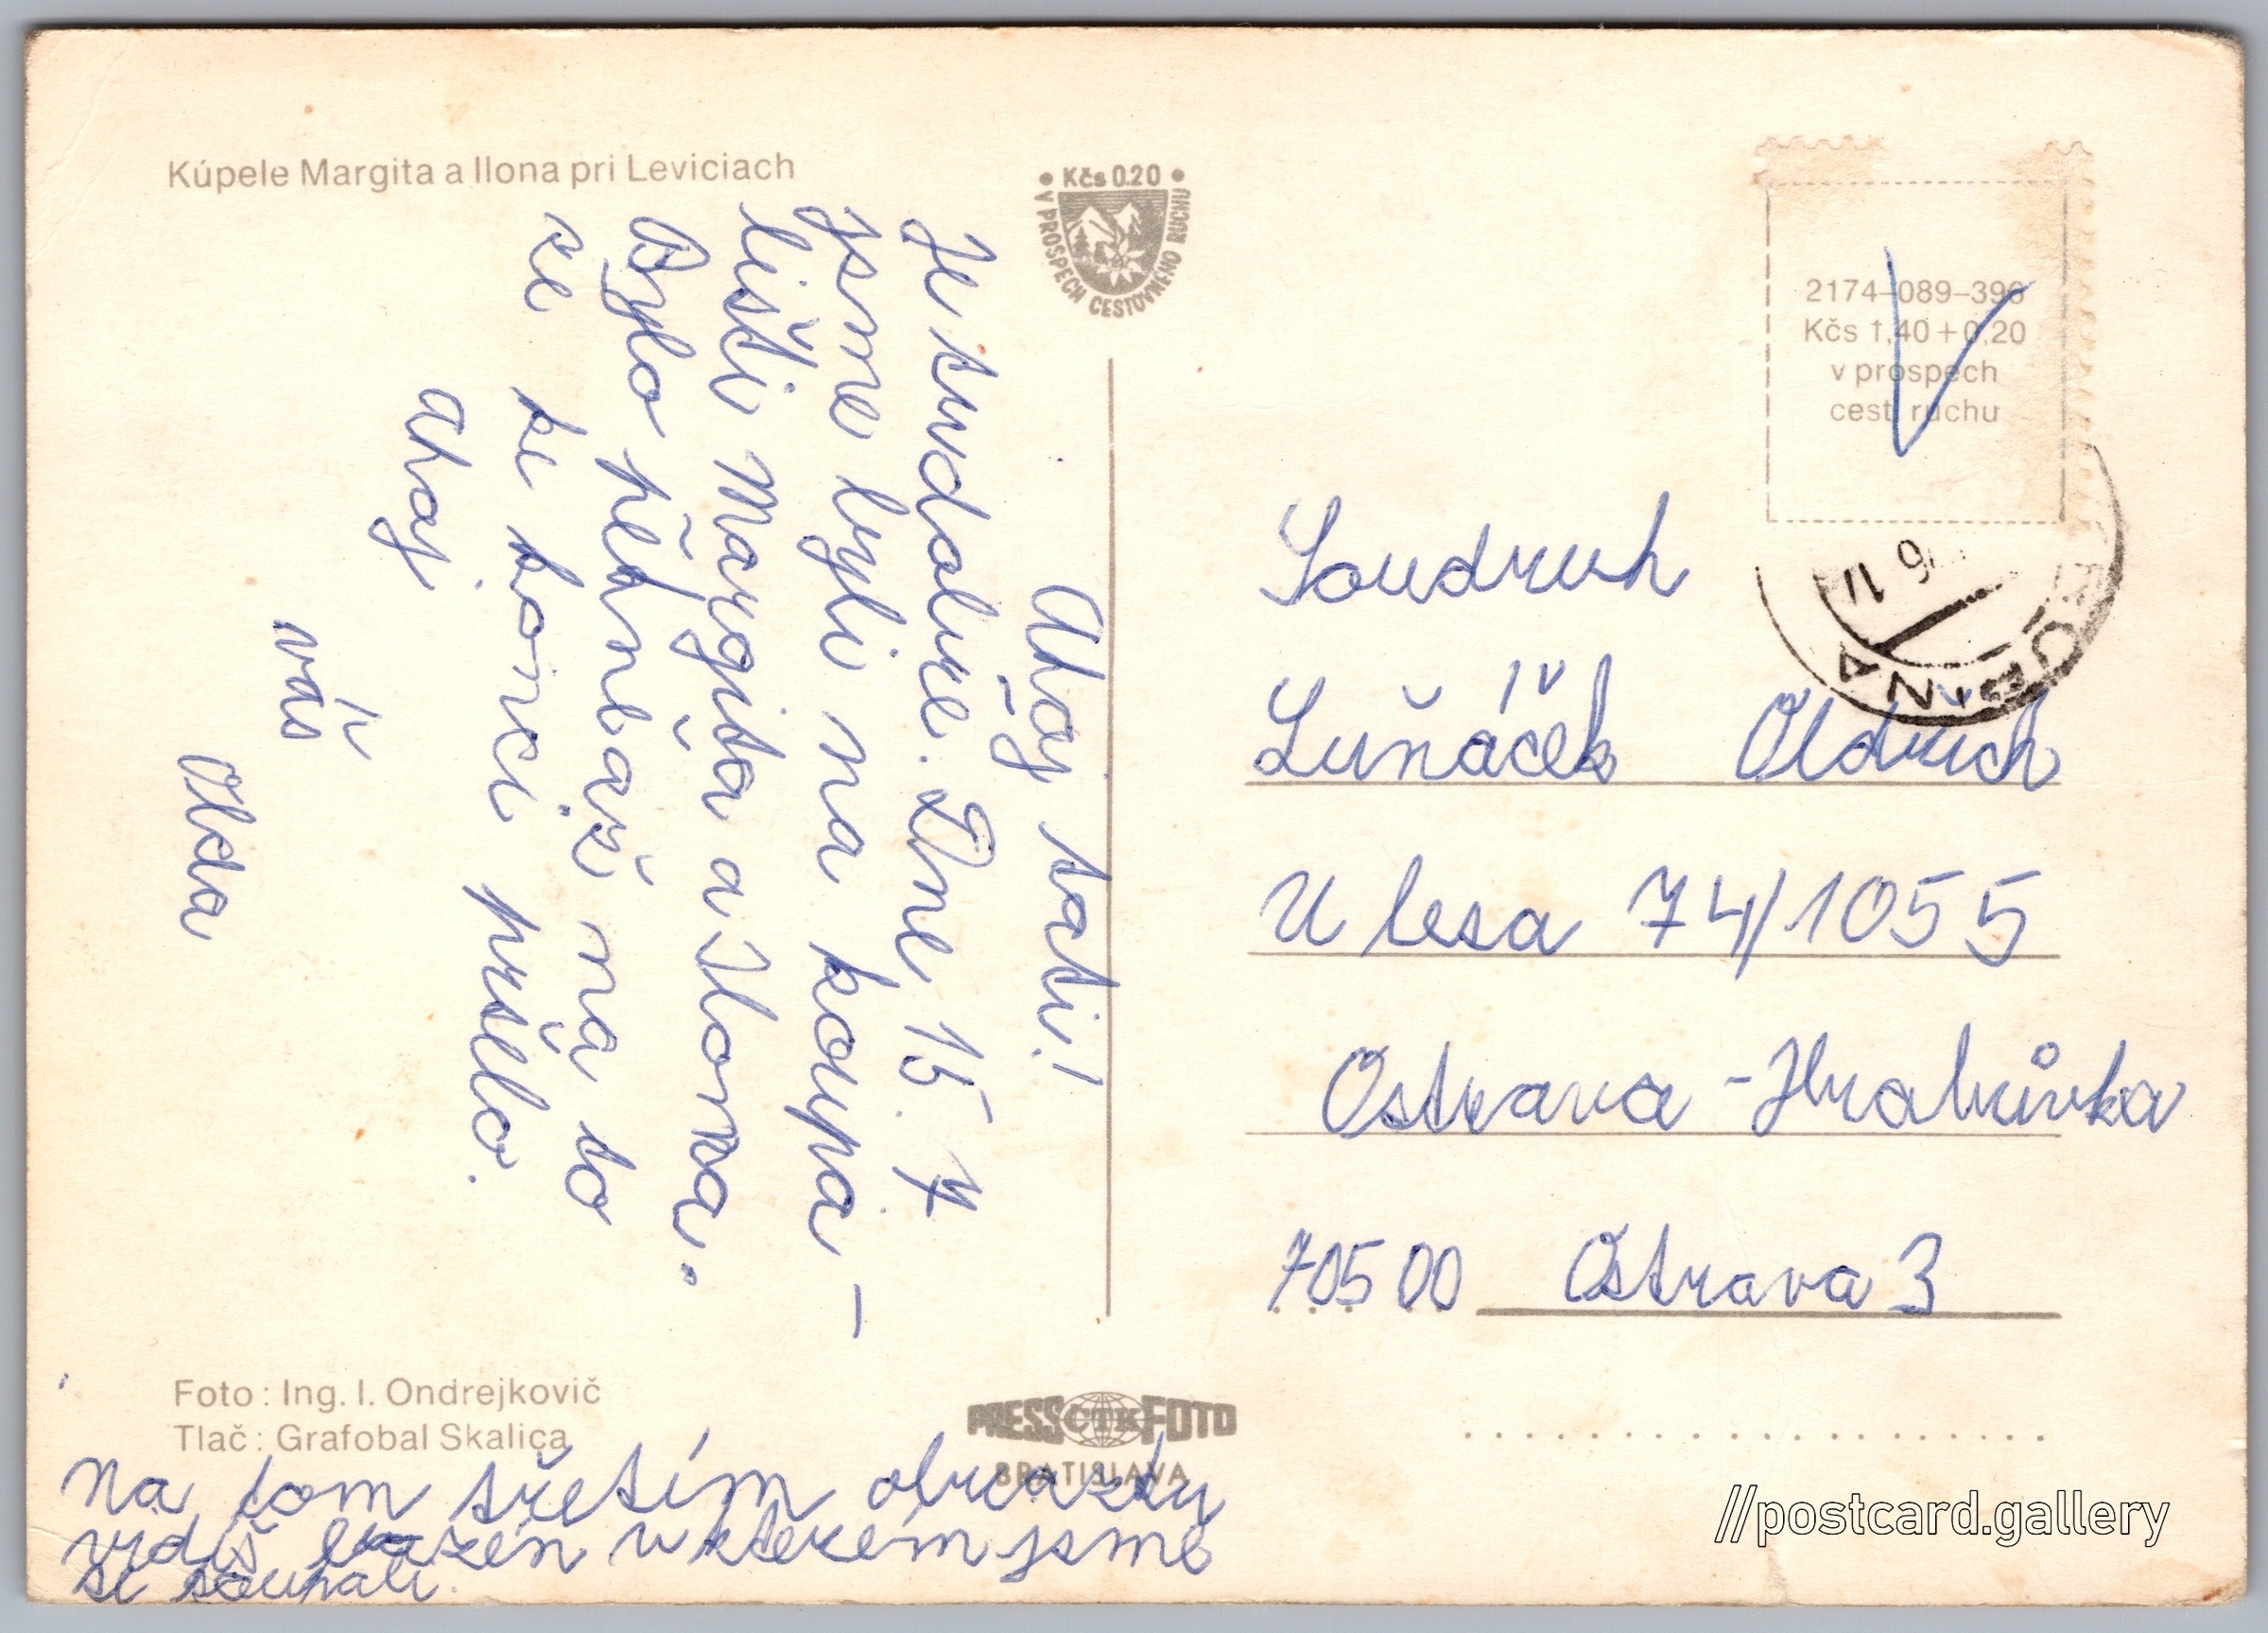 Kúpele Margita a Ilona pri Leviciach
• Kčs 0.20 •
V PROSPECH CESTOVNÉHO RUCHU
Ahoj tati!
Je tu dobře. Dne 15. 7
jsme byli na koupa-
lišti Margita a Ilona.
Bylo pěkně až na to
že ke konci pršelo.
Ahoj
váš
Olda
Foto: Ing. I. Ondrejkovič
Tlač: Grafobal Skalica
PRESS ČTK FOTO
BRATISLAVA
Na tom třetím obrazku
vidíš bazén v kterém jsme
se koupali.
2174-089-396
Kčs 1,40+0,20
v prospech
cest. ruchu
Soudruh
Luňáček Oldřich
U lesa 74/1055
Ostrava - Hrabůvka
70500 Ostrava 3
//postcard.gallery